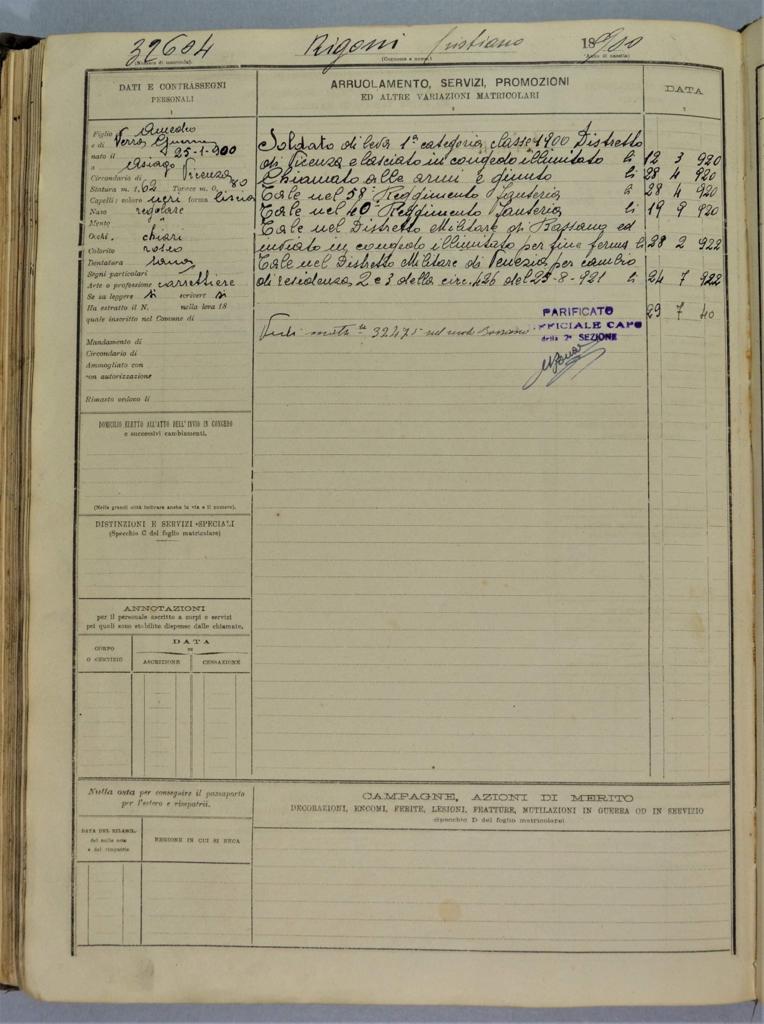 32604 Rigoni Cristiano 1900
(Numero di matricola). (Cognome e nome). (Anno di nascita)
DATI E CONTRASSEGNI
PERSONALI
1
Figlio di Amedeo
e di Verra
nato il 25-1-900
a Asiago
Circondario di Vicenza
Statura m. 1, 62 Torace m. 0, 80
Capelli: colore neri forma liscia
Naso regolare
Mento "
Occhi chiari
Colorito roseo
Dentatura sana
Segni particolari
Arte o professione carrettiere
Se sa leggere sì scrivere sì
Ha estratto il N. nella leva 18
quale inscritto nel Comune di
Mandamento di
Circondario di
Ammogliato con
con autorizzazione
Rimasto vedovo li
DOMICILIO ELETTO ALL'ATTO DELL'INVIO IN CONGEDO
e successivi cambiamenti.
(Nelle grandi città indicare anche la via e il numero).
DISTINZIONI E SERVIZI SPECIALI
(Specchio C del foglio matricolare)
ANNOTAZIONI
per il personale ascritto a corpi e servizi
pei quali sono stabilite dispense dalle chiamate.
CORPO
O SERVIZIO
DATA
DI
ASCRIZIONE CESSAZIONE
Nulla osta per conseguire il passaporto
per l'estero e rimpatrii.
DATA DEL RILASCIO
del nulla osta
e del rimpatrio
REGIONE IN CUI SI RECA
ARRUOLAMENTO, SERVIZI, PROMOZIONI
ED ALTRE VARIAZIONI MATRICOLARI
DATA
Soldato di leva 1ª categoria classe 1900 Distretto
di Vicenza e lasciato in congedo illimitato li 12 3 920
Chiamato alle armi e giunto li 28 4 920
Tale nel 58º Reggimento Fanteria li 28 4 920
Tale nel 40º Reggimento Fanteria li 19 9 920
Tale nel Distretto Militare di Bassano ed
inviato in congedo illimitato per fine ferma li 28 2 922
Tale nel Distretto Militare di Venezia per cambio
di residenza, 2 e 3 della circ. 426 del 25-8-921 li 24 7 922
29 7 40
Vedi matr. 32475 nel
PARIFICATO
UFFICIALE CAPO
della 2ª SEZIONE
CAMPAGNE, AZIONI DI MERITO
DECORAZIONI, ENCOMI, FERITE, LESIONI, FRATTURE, MUTILAZIONI IN GUERRA OD IN SERVIZIO
(Specchio D del foglio matricolare)